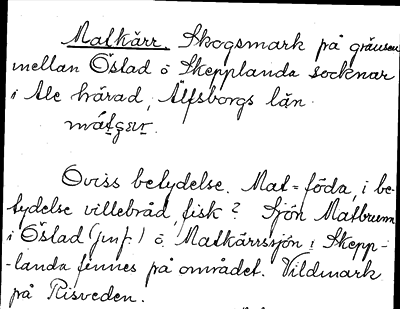 Matkärr. Skogsmark på gränsen
mellan Östad o Skepplanda socknar
i Ale härad, Älfsborgs län.
Oviss betydelse. Mat = föda, i be-
tydelse villebråd, fisk? Sjön Matbrunn
i Östad (jmf.) o. Matkärrssjön i Skepp-
-landa finnes på området. Vildmark
på Risveden.